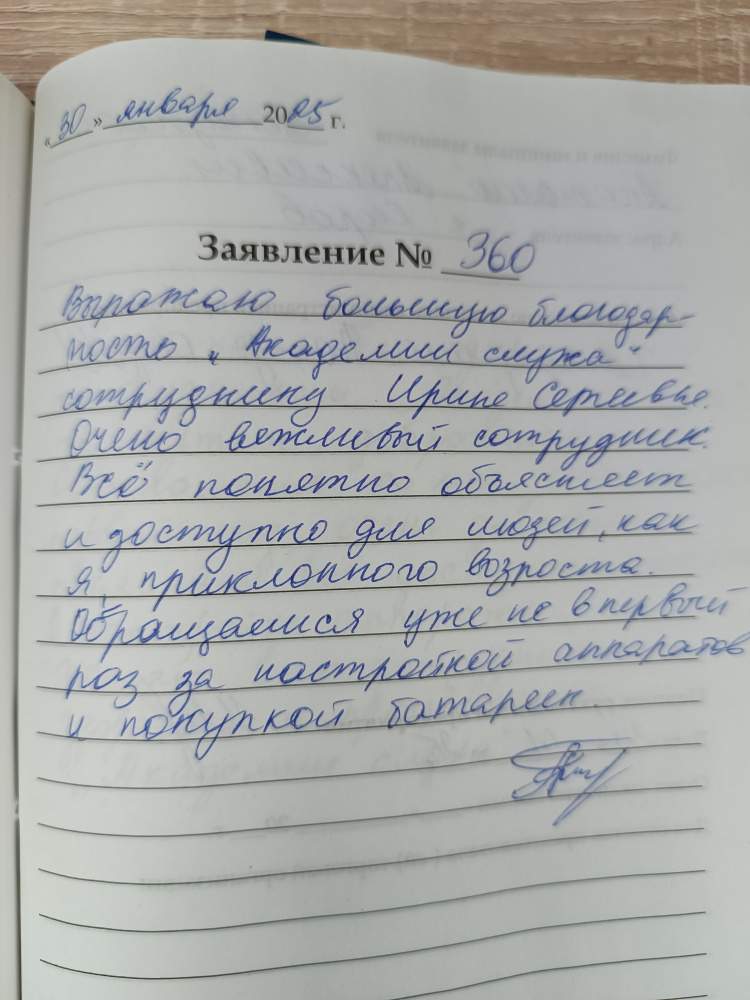 «30» января 2025 г.
Заявление № 360
Выражаю большую благодар-
ность „Академии слуха"
сотруднику Ирине Сергеевне.
Очень вежливый сотрудник.
Всё понятно объясняет
и доступно для людей, как
я, приклонного возроста.
Обращаемся уже не в первый
раз за настройкой аппаратов
и покупкой батареек.